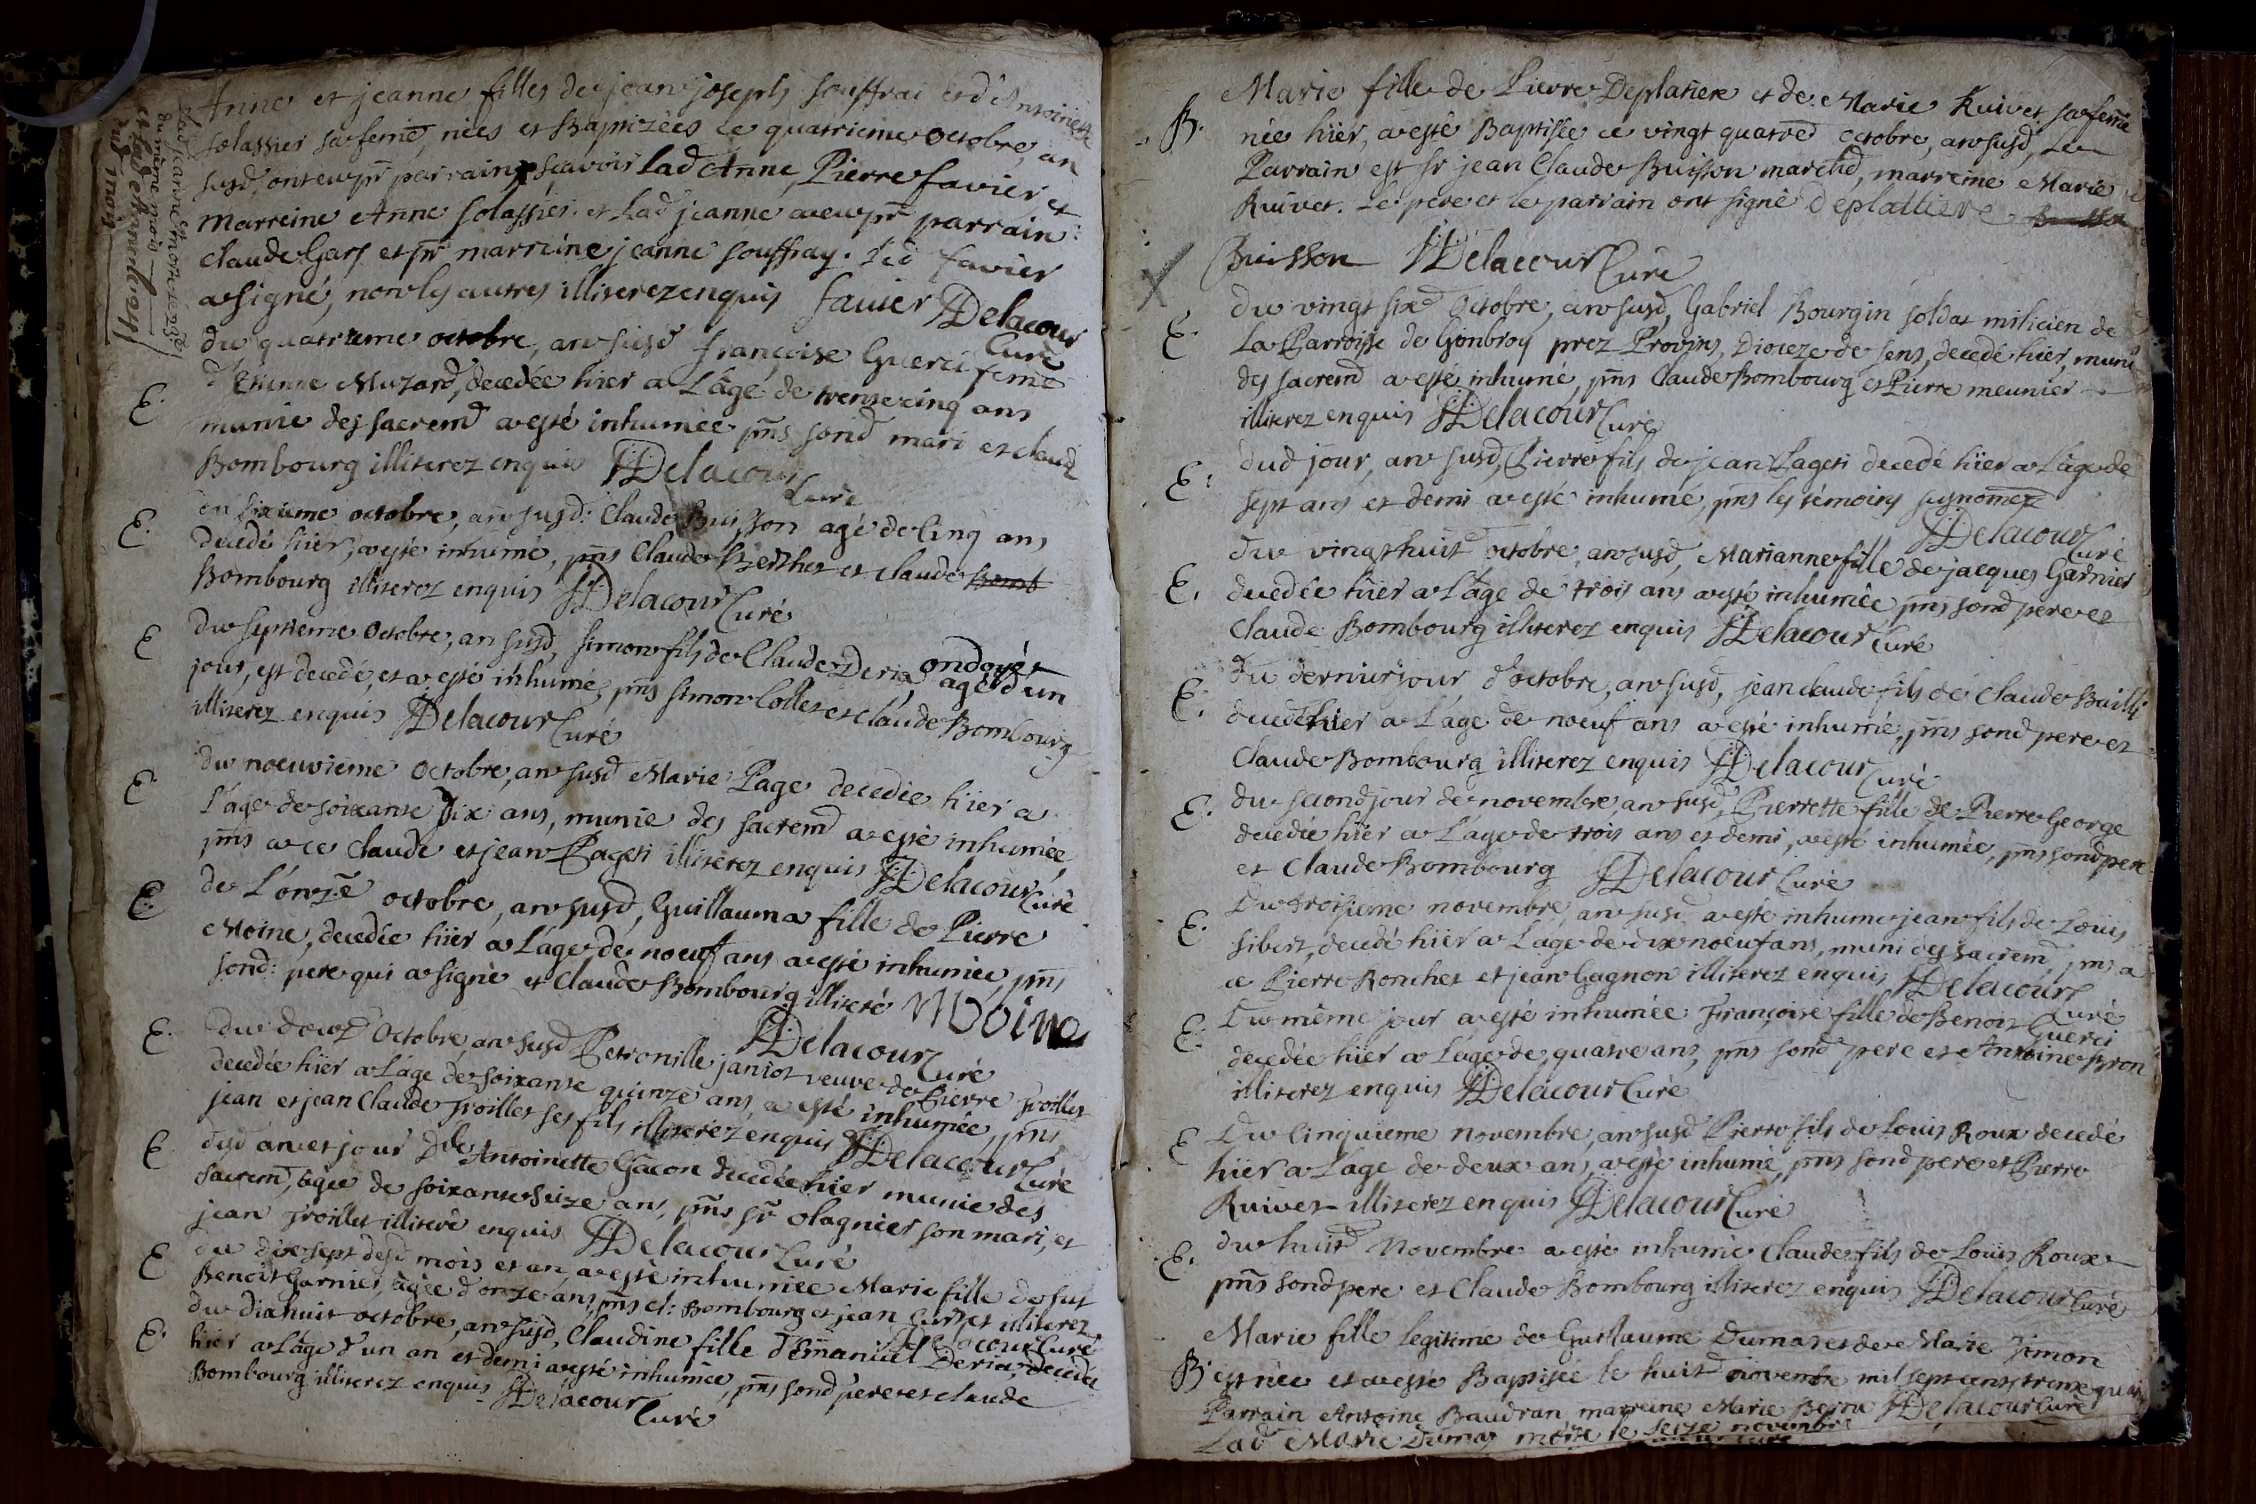 Anne et jeanne filles de jean joseph souffrai et d'Antoinette
solassier sa feme, nées et Baptizées le quatrieme octobre, an
susd, ont eu pr parrain scavoir lad Anne, Pierre favier et
marreine Anne solassier. et lad jeanne a eu pr parrain
claude Gars et pr marreine jeanne souffray. led favier
a signé, non les autres illiterez enquis favier Delacour
Curé
du quatrieme octobre, an susd françoise Guerci feme
E. d'Etienne Muzard, decedée hier a L'age de trente cinq ans
munie des sacremd a esté inhumée pns sond mari et claude
Bombourg illiterez enquis Delacour
Curé
E. du sixieme octobre, an susd: Claude Buisson agé de Cinq ans
decedé hier, a esté inhumé, pns Claude Berthet et claude Bomb
Bombourg illiterez enquis Delacour Curé
E du septieme octobre, an susd, simon fils de Claude Deria ondoyé
agé d'un
jour, est decedé, et a esté inhumé, pns simon Collet et claude Bombourg
illiterez enquis Delacour Curé
du noeuvieme octobre, an susd Marie Page decedée hier a
E. l'age de soixante dix ans, munie des sacremd a esté inhumée,
pns a ce Claude et jean Pageti illiterez enquis Delacour Curé
E. de L'onze octobre, an susd, Guillauma fille de Pierre
Moine, decedée hier a L'age de noeuf ans a esté inhumée, pns
sond: pere qui a signé et Claude Bombourg illiteré Moine
Delacour Curé
E. du douzd octobre, an susd Petronille janiot veuve de Pierre Troillet
decedée hier a L'age de soixante quinze ans, a esté inhumée, pns
jean et jean Claude Troillet ses fils illiterez enquis Delacour Curé
E. dud an et jour Dlle Antoinette Gacon decedée hier munie des
sacrem, agée de soixante seize ans, pns sr olagnier son mari, et
jean Troillet illiteré enquis Delacour Curé
E du dix sept desd mois et an a esté inhumée Marie fille de fut
Benoit Garnier, agée d'onze ans, pns cl: Bombourg et jean illiterez
Delacour Curé
E. du dixhuit octobre, an susd, Claudine fille d'Emanuel Deria, decedée
hier a L'age d'un an et demi a esté inhumée, pns sond pere et claude
Bombourg illiterez enquis Delacour
Curé
lad jeanne est
morte le 23e
du même mois
et lad Anne le 25
dud mois
Marie fille de Pierre Deplatiere et de Marie Ruivet, sa feme
B. née hier, a esté Baptisée ce vingt quatred octobre, an susd, Le
Parrain est sr jean Claude Buisson marchd, marreine Marie
Ruivet. Le pere et le parrain ont signé Deplattiere
Buisson Delacour Curé
E. du vingt sixd octobre, an susd, Gabriel Bourgin soldat milicien de
La Parroisse de Gimbroy prez Provins, Dioceze de sens, decedé hier, muni
des sacremd a esté inhumé, pns Claude Bombourg et Pierre meunier
illiterez enquis Delacour Curé
E. dud jour, an susd, Pierre fils de jean Pageti decedé hier a L'age de
sept ans et demi a esté inhumé, pns les témoins susnomez
Delacour Curé
E. du vingt huitd octobre, an susd, Marianne fille de jacques Garnier
decedée hier a L'age de trois ans a esté inhumée pns sond pere et
Claude Bombourg illiterez enquis Delacour Curé
E. du dernier jour d'octobre, an susd, jean claude fils de Claude Bailli
decedé hier a L'age de noeuf ans a esté inhumé, pns sond pere et
Claude Bombourg illiterez enquis Delacour Curé
E. du second jour de novembre an susd, Pierrette fille de Pierre George
decedée hier a L'age de trois ans et demi, a esté inhumée, pns sond pere
et Claude Bombourg Delacour Curé
E. Du troisieme novembre, an susd a esté inhumé jean fils de Loüis
sibert, decedé hier a L'age de dix noeuf ans, muni des sacrem, pns a
ce Pierre Ronchet et jean Gagnon illiterez enquis Delacour
Curé
E. Du même jour a esté inhumée Françoise fille de Benoit Guerci
decedée hier a L'age de quatre ans, pns sond pere et Antoine Bron
illiterez enquis Delacour Curé
E Du Cinquieme novembre, an susd Pierre fils de Louis Roux decedé
hier a L'age de deux ans, a esté inhumé, pns sond pere et Pierre
Ruivet illiterez enquis Delacour Curé
E. du huitd Novembre a esté inhumé Claude fils de Loüis Roux
pns sond pere et Claude Bombourg illiterez enquis Delacour Curé
Marie fille legitime de Guillaume Dumas et de Marie Simon
B. est née et a esté Baptisée le huitd novembre mil sept cens trente quatre
Parrain Antoine Baudran marreine Marie Berru Delacour Curé
Lad Marie Dumas morte le seize novembre